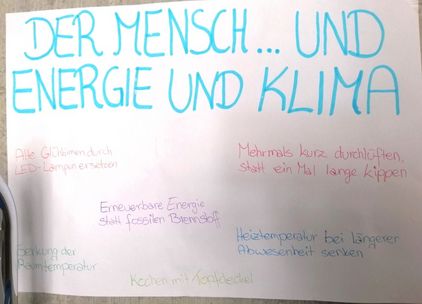 DER MENSCH... UND
ENERGIE UND KLIMA
Alte Glühbirnen durch
LED-Lampen ersetzen
Mehrmals kurz durchlüften,
statt ein Mal lange kippen
Erneuerbare Energie
statt fossilen Brennstoff
Senkung der
Raumtemperatur
Heiztemperatur bei längerer
Abwesenheit senken
Kochen mit Topfdeckel